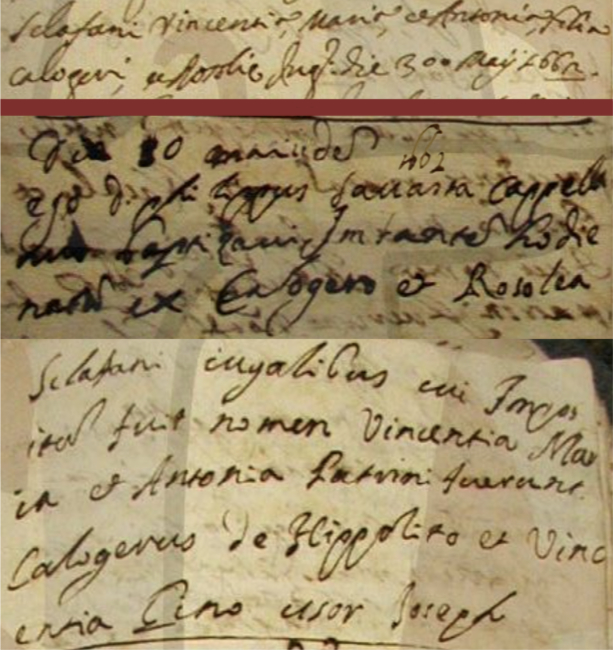 Sclafani Vincentia Maria et Antonia filia
Calogeri, et Rosolie Jug. die 30 Maij 1662.
Die 30 maii
1662
ego D. philippus Cappella
nus baptizavi Infantem hodie
natam ex Calogero et Rosolea
Sclafani iugalibus cui Impos
itum fuit nomen Vincentia Mar
ia et Antonia Patrini fuerunt
Calogerus de Hippolito et Vinc
entia Cino uxor Joseph